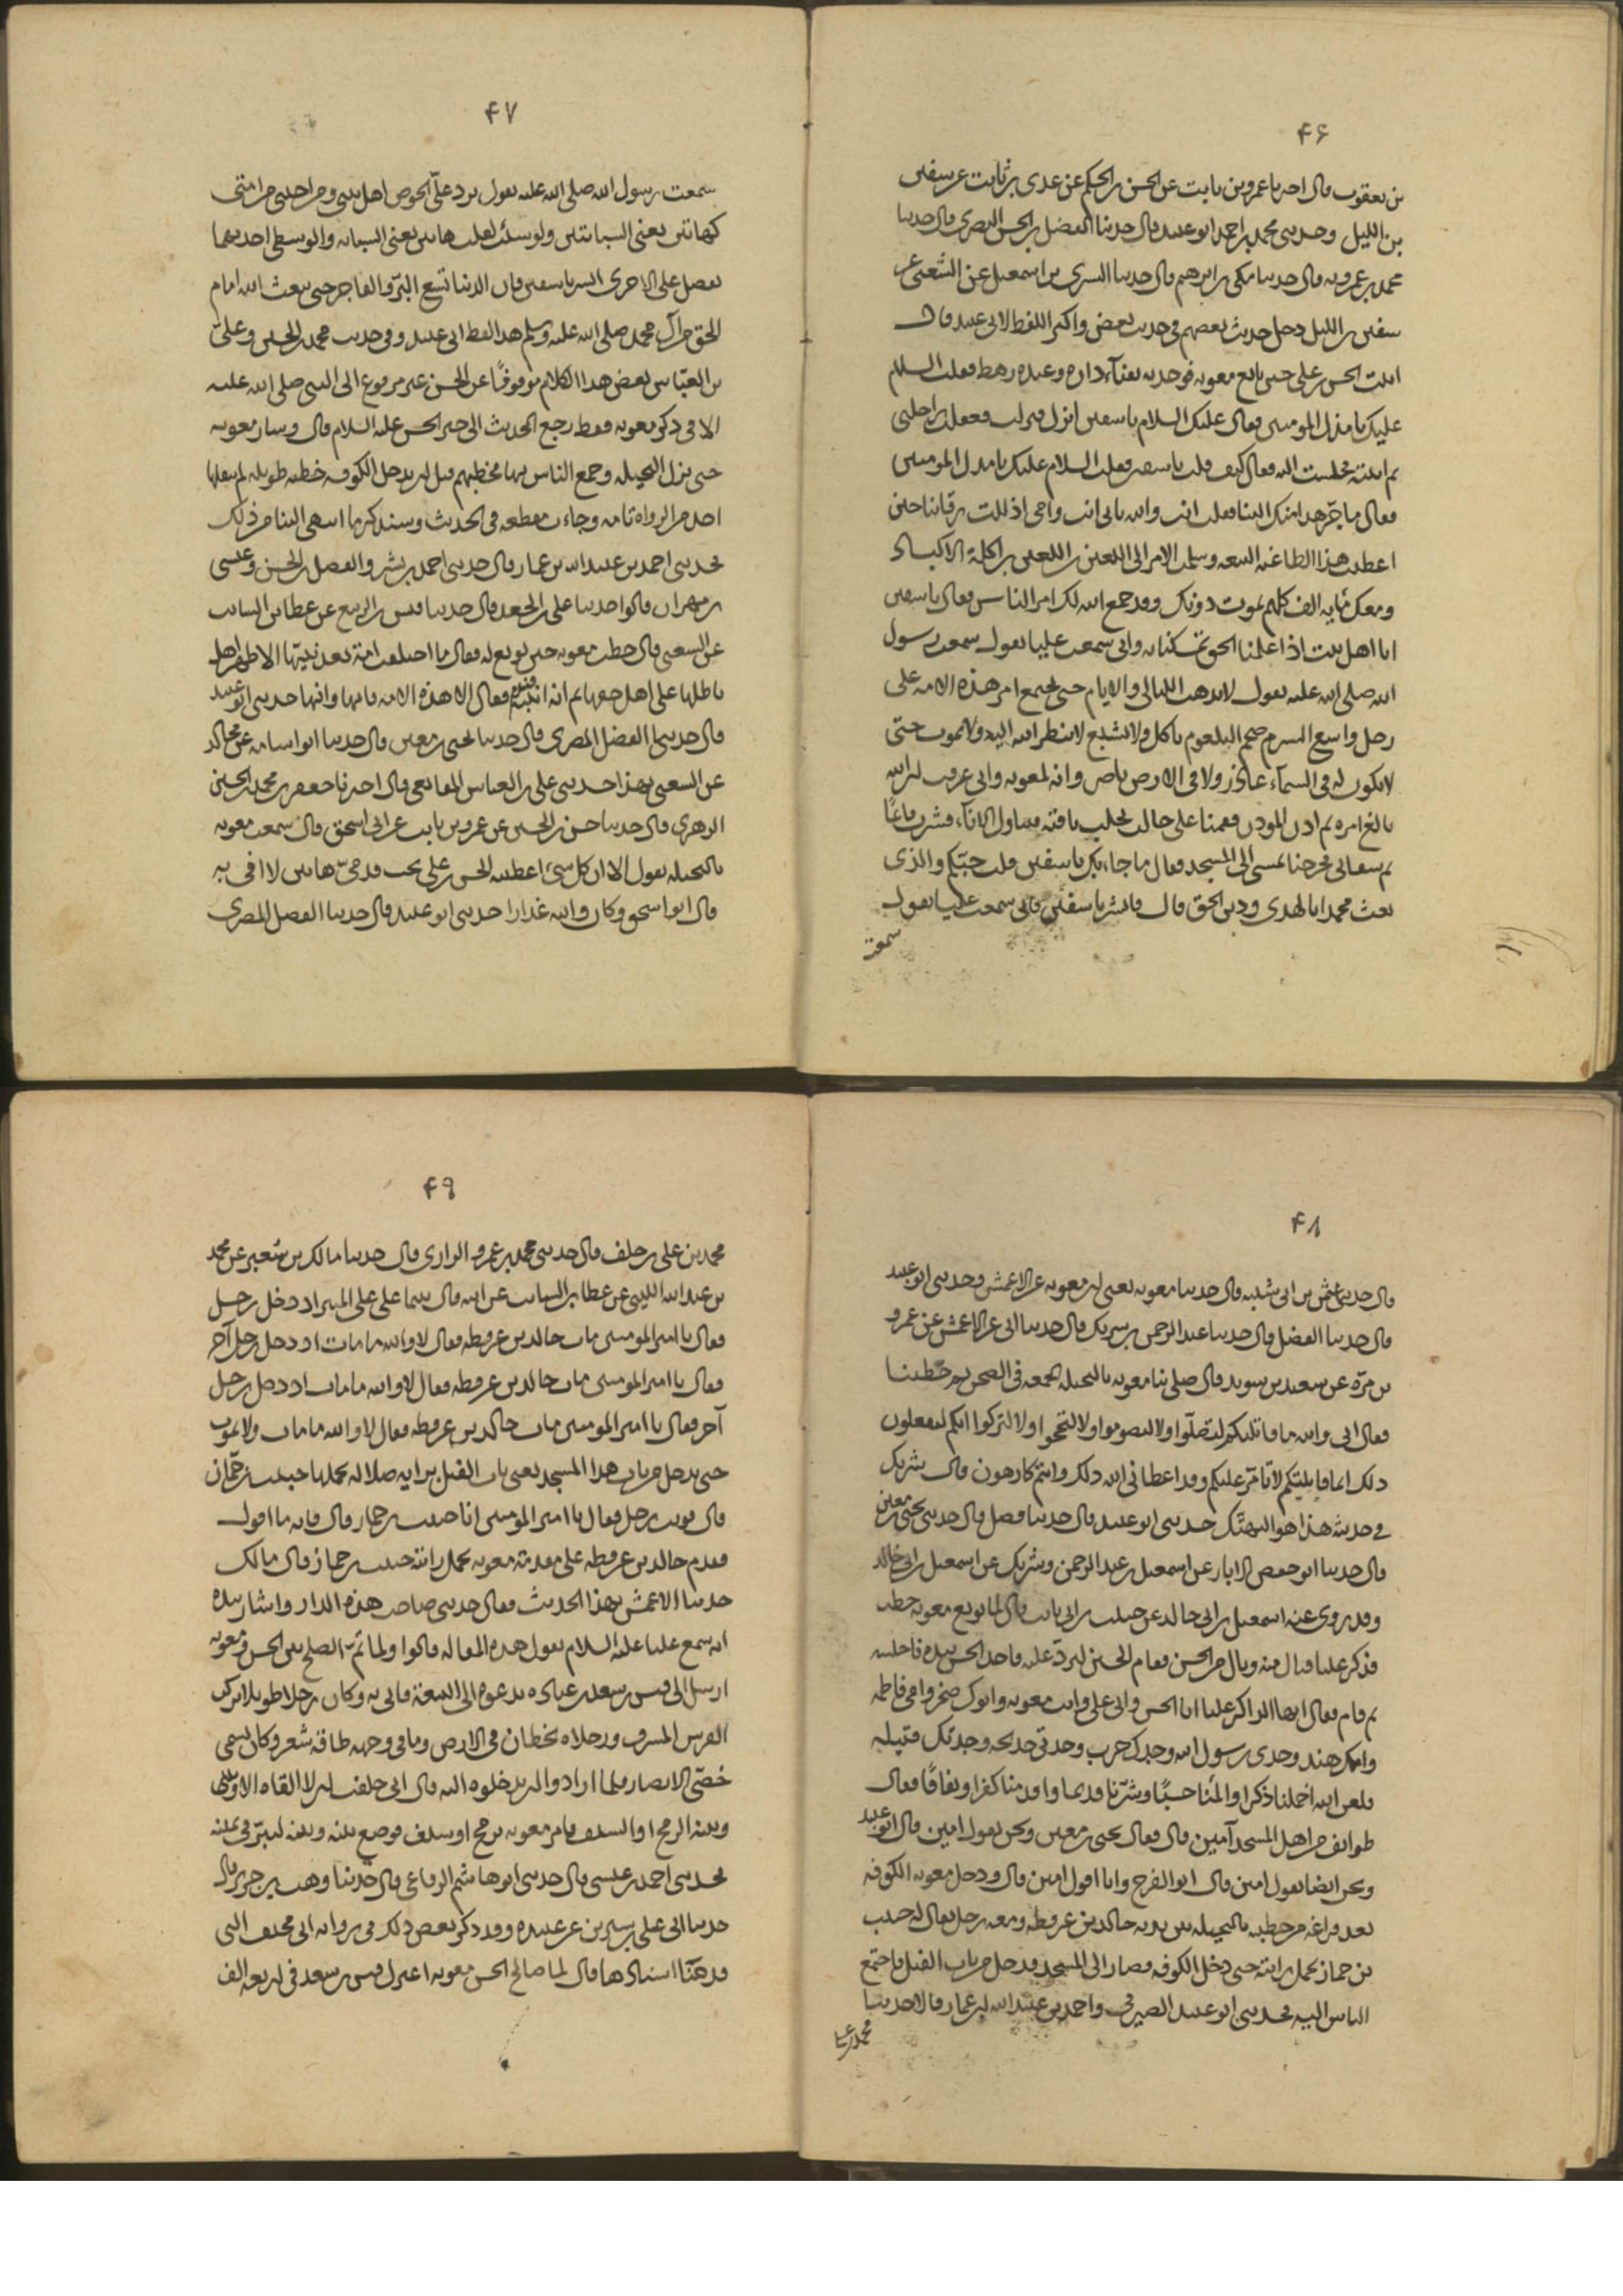 ۴۶
بن يعقوب قال اخبرنا عمرو بن ثابت عن الحسن بن الحكم عن عدى بن ثابت عن سفين
بن الليل وحدثنى محمد بن احمد ابو عبيد قال حدثنا الفضل بن الحسن البصرى قال حدثنا
محمد بن عمرويه قال حدثنا مكى بن ابرهيم قال حدثنا السرى بن اسمعيل عن الشعبى عن
سفين بن الليل دخل حديث بعضهم فى حديث بعض واكثر اللفظ لابى عبيد قال
اتيت الحسن بن على حين بايع معويه فوجدته بفناء داره وعنده رهط فقلت السلام
عليك يا مذل المومنين فقال عليك السلام يا سفين انزل فنزلت فعقلت راحلتى
ثم اتيته فجلست اليه فقال كيف قلت يا سفين فقلت السلام عليك يا مذل المومنين
فقال ما جر هذا منك الينا فقلت انت والله بابى انت وامى اذللت رقابنا حين
اعطيت هذا الطاغيه البيعه وسلمت الامر الى اللعين بن اللعين بن اكلة الاكباد
ومعك مايه الف كلهم يموت دونك وقد جمع الله لك امر الناس فقال يا سفين
انا اهل بيت اذا علمنا الحق تمسكنا به وانى سمعت عليا يقول سمعت رسول
الله صلى الله عليه يقول لا تذهب الليالى والايام حتى يجتمع امر هذه الامه على
رجل واسع السرم ضخم البلعوم ياكل ولا يشبع لا ينظر الله اليه ولا يموت حتى
لا يكون له فى السماء عاذر ولا فى الارض ناصر وانه لمعويه وانى عرفت ان الله
بالغ امره ثم اذن الموذن فقمنا على حالب يحلب ناقته فتناول الاناء فشرب قائما
ثم سقانى فخرجنا نمشى الى المسجد فقال ما جاء بك يا سفين قلت حبكم والذى
بعث محمدا بالهدى ودين الحق قال فابشر يا سفين فانى سمعت عليا يقول
سمعت
۴۷
سمعت رسول الله صلى الله عليه يقول يرد على الحوض اهل بيتى ومن احبنى من امتى
كهاتين يعنى السبابتين ولو شئت لقلت هاتين يعنى السبابه والوسطى احديهما
تفضل على الاخرى ابشر يا سفين فان الدنيا تسع البر والفاجر حتى يبعث الله امام
الحق من آل محمد صلى الله عليه وسلم هذا لفظ ابى عبيد وفى حديث محمد بن الحسين وعلى
بن العباس بعض هذا الكلام موقوفا عن الحسن غير مرفوع الى النبى صلى الله عليه
الا فى ذكر معويه فقط رجع الحديث الى خبر الحسن عليه السلام قال وسار معويه
حتى نزل النخيله وجمع الناس بها فخطبهم قبل ان يدخل الكوفه خطبه طويله لم ينقلها
احد من الرواه تامه وجاءت مقطعه فى الحديث وسنذكر ما انتهى الينا من ذلك
فحدثنى احمد بن عبيد الله بن عمار قال حدثنى احمد بن بشر والفضل بن الحسن وعيسى
بن مهران قالوا حدثنا على بن الجعد قال حدثنا قيس بن الربيع عن عطا بن السائب
عن الشعبى قال خطب معويه حين بويع له فقال ما اختلفت امة بعد نبيها الا ظهر اهل
باطلها على اهل حقها ثم انه انتبه فندم فقال الا هذه الامه فانها وانها حدثنى ابو عبيد
قال حدثنا الفضل المصرى قال حدثنا يحيى بن معين قال حدثنا ابو اسامه عن مجالد
عن الشعبى بهذا حدثنى على بن العباس المقانعى قال اخبرنا جعفر بن محمد بن الحسين
الزهرى قال حدثنا حسن بن الحسين عن عمرو بن ثابت عن ابى اسحق قال سمعت معويه
بالنخيله يقول الا ان كل شىء اعطيته الحسن بن على تحت قدمى هاتين لا افى به
قال ابو اسحق وكان والله غدارا حدثنى ابو عبيد قال حدثنا الفضل المصرى
۴۸
قال حدثنى عثمن بن ابى شيبه قال حدثنا معويه يعنى ابن معويه عن الاعمش وحدثنى ابو عبيد
قال حدثنا الفضل قال حدثنا عبد الرحمن بن شريك قال حدثنا ابى عن الاعمش عن عمرو
بن مرة عن سعيد بن سويد قال صلى بنا معويه بالنخيله الجمعه فى الصحن ثم خطبنا
فقال انى والله ما قاتلتكم لتصلوا ولا لتصوموا ولا لتحجوا ولا لتزكوا انكم لتفعلون
ذلك انما قاتلتكم لاتامر عليكم وقد اعطانى الله ذلك وانتم كارهون قال شريك
فى حديثه هذا هو التهتك حدثنى ابو عبيد قال حدثنا فضل قال حدثنى يحيى بن معين
قال حدثنا ابو حفص الابار عن اسمعيل بن عبد الرحمن وشريك عن اسمعيل بن ابى خالد
وقد روى عنه اسمعيل بن ابى خالد عن حبيب بن ابى ثابت قال لما بويع معويه خطب
فذكر عليا فنال منه ونال من الحسن فقام الحسين ليرد عليه فاخذ الحسن بيده فاجلسه
ثم قام فقال ايها الذاكر عليا انا الحسن وابى على وانت معويه وابوك صخر وامى فاطمه
وامك هند وجدى رسول الله وجدك حرب وجدتى خديجه وجدتك قتيله
فلعن الله اخملنا ذكرا والأمنا حسبا وشرنا قدما واقدمنا كفرا ونفاقا فقال
طوائف من اهل المسجد آمين قال فقال يحيى بن معين ونحن نقول امين قال ابو عبيد
ونحن ايضا نقول امين قال ابو الفرج وانا اقول امين قال ودخل معويه الكوفه
بعد فراغه من خطبته بالنخيله بين يديه خالد بن عرفطه ومعه رجل يقال له حبيب
بن حماز يحمل رايته حتى دخل الكوفه فصار الى المسجد فدخل من باب الفيل فاجتمع
الناس اليه فحدثنى ابو عبيد الصيرفى واحمد بن عبيد الله بن عمار قالا حدثنا
محمد بن على
۴۹
محمد بن على بن خلف قال حدثنى محمد بن عمرو الرازى قال حدثنا مالك بن سعير عن محمد
بن عبد الله الليثى عن عطا بن السائب عن ابيه قال بينما على على المنبر اذ دخل رجل
فقال يا امير المومنين مات خالد بن عرفطه فقال لا والله ما مات اذ دخل رجل آخر
فقال يا امير المومنين مات خالد بن عرفطه فقال لا والله ما مات اذ دخل رجل
آخر فقال يا امير المومنين مات خالد بن عرفطه فقال لا والله ما مات ولا يموت
حتى يدخل من باب هذا المسجد يعنى باب الفيل براية ضلاله يحملها حبيب بن حماز
قال فوثب رجل فقال يا امير المومنين انا حبيب بن حماز قال فانه ما اقول
فقدم خالد بن عرفطه على مقدمة معويه يحمل رايته حبيب بن حماز قال مالك
حدثنا الاعمش بهذا الحديث فقال حدثنى صاحب هذه الدار واشار بيده
انه سمع عليا عليه السلام يقول هذه المقاله قالوا ولما تم الصلح بين الحسن ومعويه
ارسل الى قيس بن سعد بن عباده يدعوه الى البيعة فاتى به وكان رجلا طويلا يركب
الفرس المسرف ورجلاه يخطان فى الارض وما فى وجهه طاقة شعر وكان يسمى
خصى الانصار فلما ارادوا ان يدخلوه اليه قال انى حلفت ان لا القاه الا وبينى
وبينه الرمح او السيف فامر معويه برمح او بسيف فوضع بينه وبينه ليبر فى يمينه
فحدثنى احمد بن عيسى قال حدثنى ابو هاشم الرفاعى قال حدثنا وهب بن جرير قال
حدثنا ابى على بن سيرين عن عبيده وقد ذكر بعض ذلك فى روايه ابى مخنف التى
قدمنا اسنادها قال لما صالح الحسن معويه اعتزل قيس بن سعد فى اربعه الف